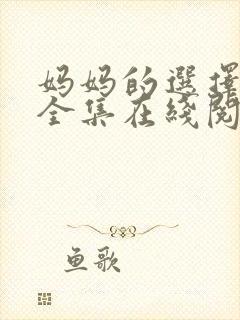 妈妈的選擇
全集在綫閱
鱼歌